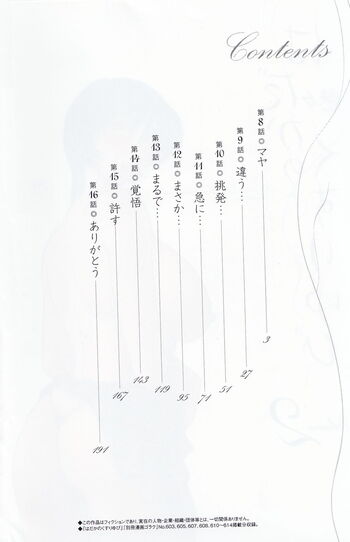 Contents
第8話 マヤ 3
第9話 違う… 27
第10話 挑発… 51
第11話 急に… 71
第12話 まさか… 95
第13話 まるで… 119
第14話 覚悟 143
第15話 許す 167
第16話 ありがとう 191
●この作品はフィクションであり、実在の人物・企業・組織・団体等とは、一切関係ありません。
●『はだかのくすりゆび』『別冊漫画ゴラク』No.603, 605, 607, 608, 610〜614掲載分収録。